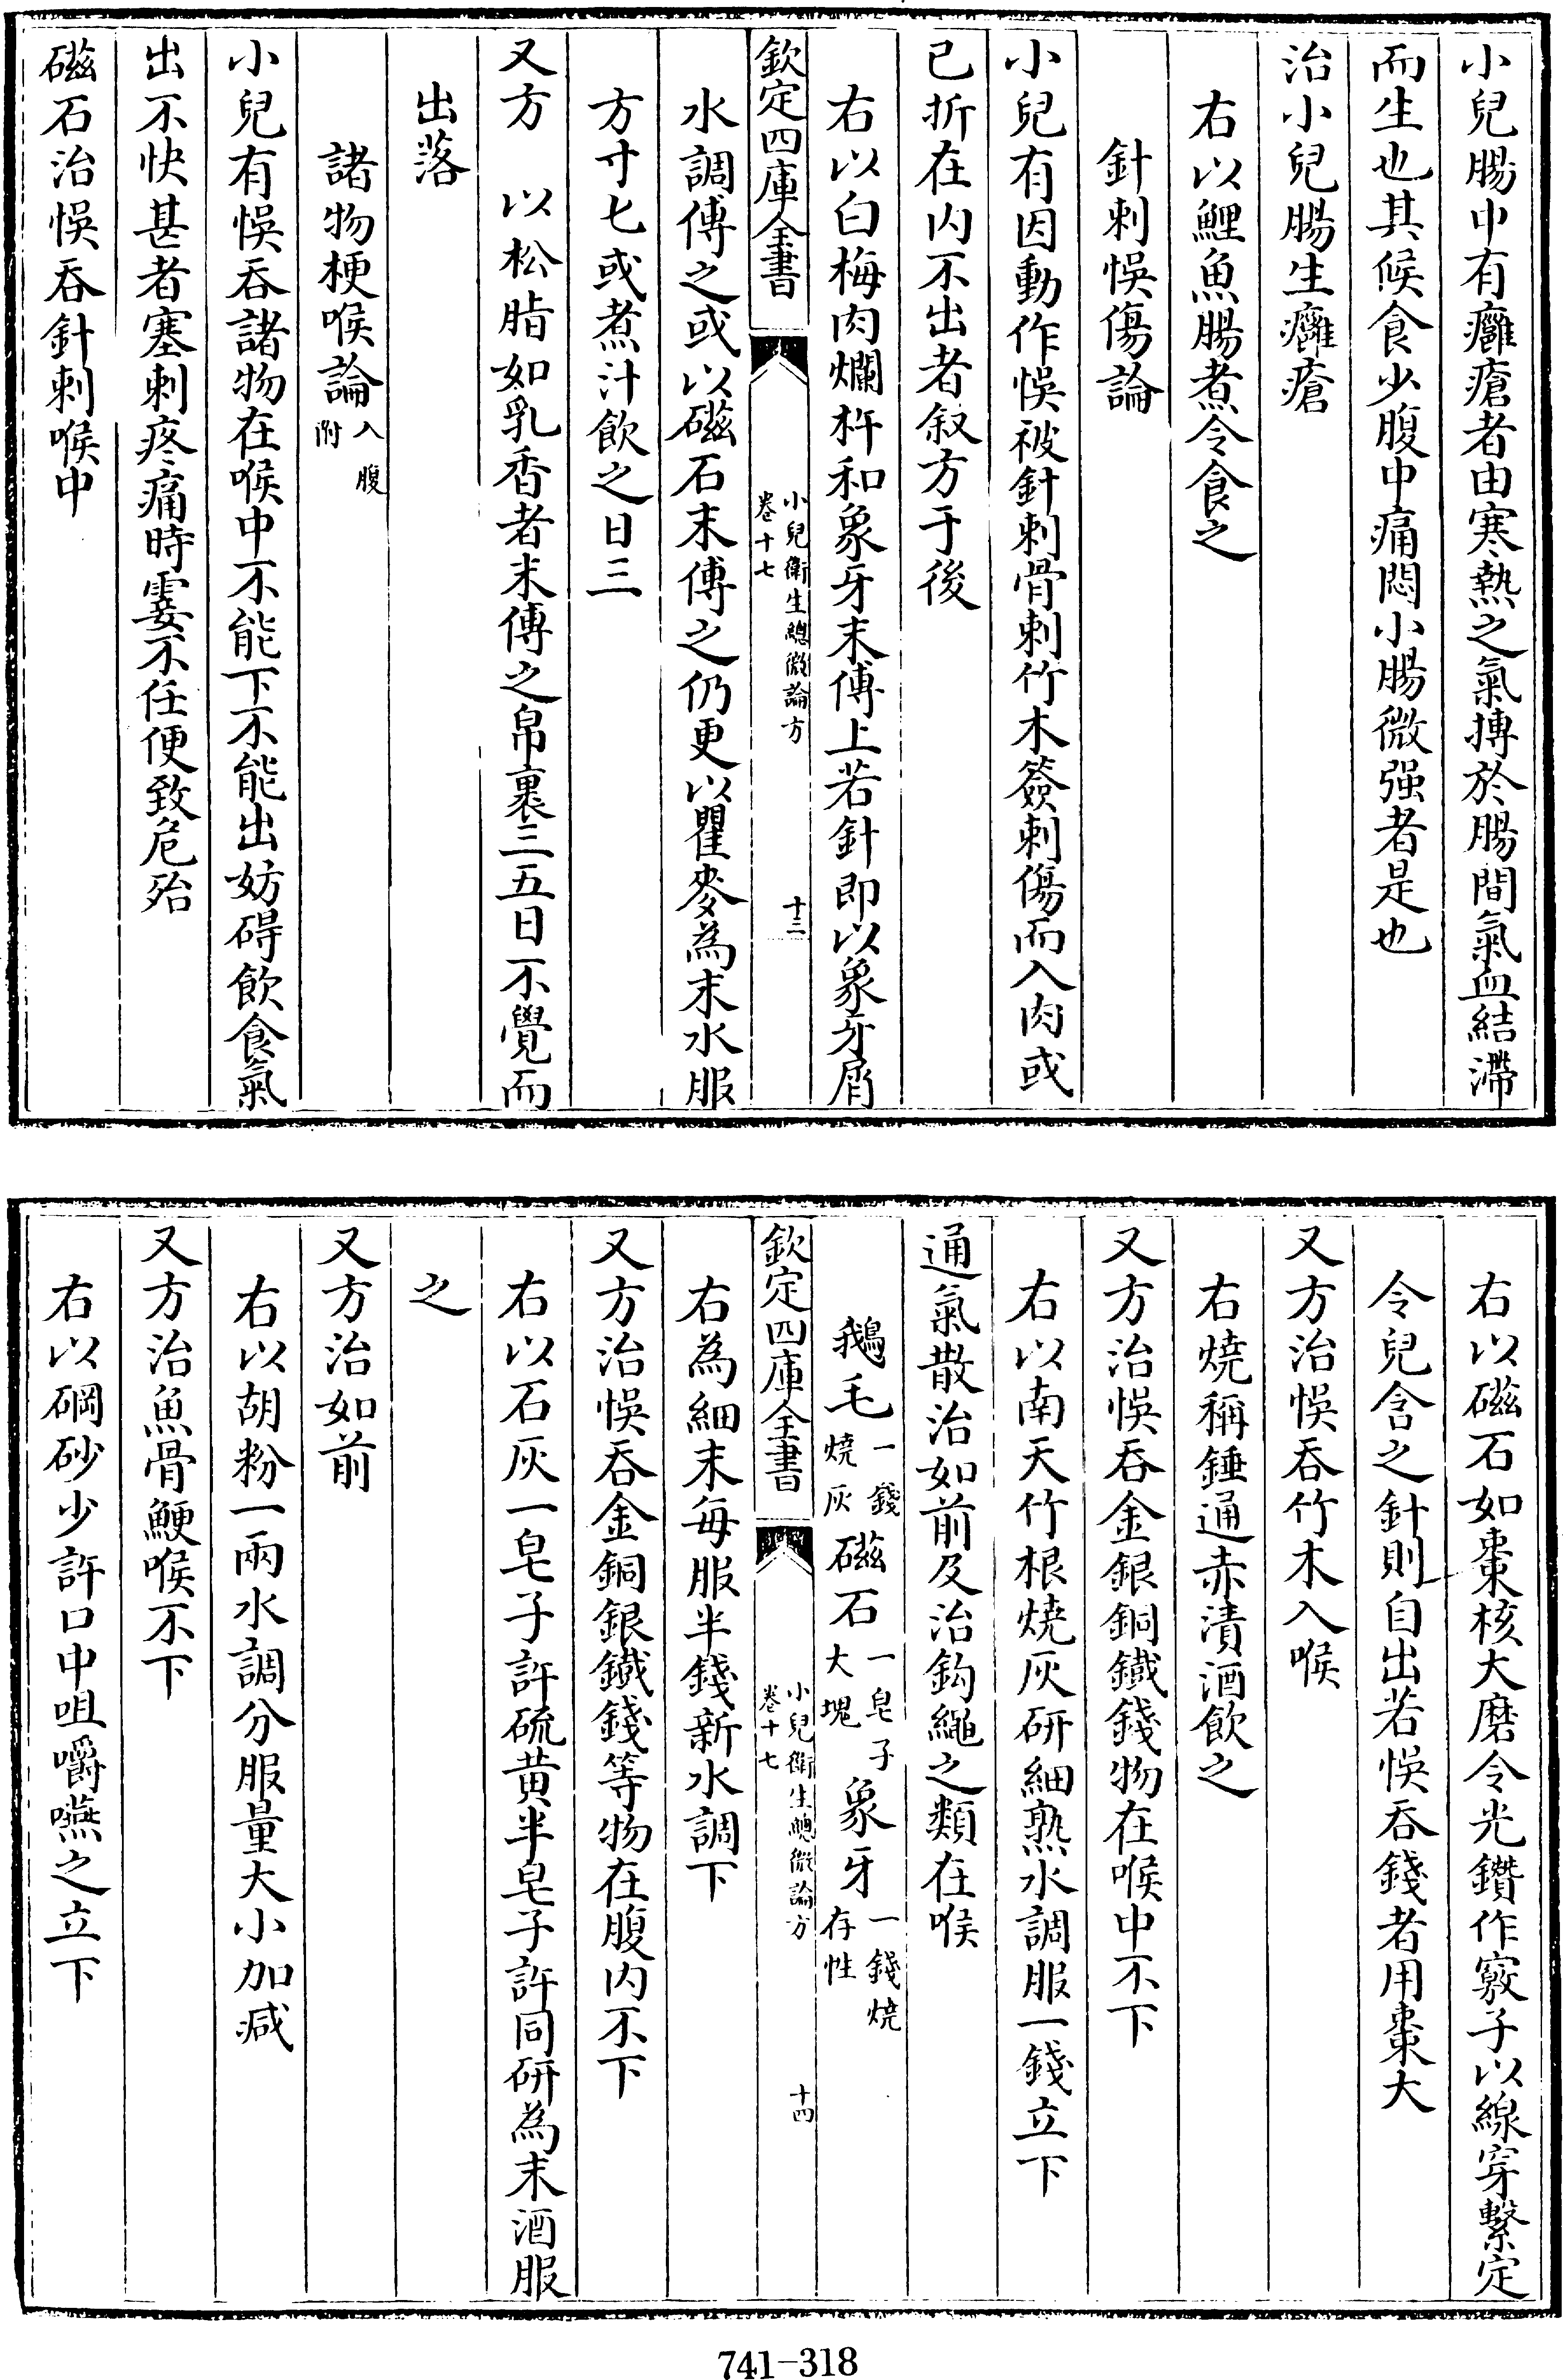 小兒腸中有癰瘡者由寒熱之氣摶於腸間氣血結滯
而生也其候食少腹中痛悶小腸微强者是也
治小兒腸生癰瘡
右以鯉魚腸煮令食之
針刺悞傷論
小兒有因動作悞被針刺骨刺竹木簽刺傷而入肉或
已折在内不出者叙方于後
右以白梅肉爛杵和象牙末傅上若針即以象牙屑
欽定四庫全書
小兒衛生總微論方
卷十七
十三
水調傅之或以磁石末傅之仍更以瞿麥為末水服
方寸七或煮汁飲之日三
又方 以松脂如乳香者末傅之帛裹三五日不覺而
出落
諸物梗喉論入腹附
小兒有悞吞諸物在喉中不能下不能出妨碍飲食氣
出不快甚者塞刺疼痛時霎不任便致危殆
磁石治悞吞針刺喉中
右以磁石如棗核大磨令光鑽作竅子以線穿繫定
令兒含之針則自出若悞吞錢者用棗大
又方治悞吞竹木入喉
右燒稱錘通赤漬酒飲之
又方治悞吞金銀銅鐵錢物在喉中不下
右以南天竹根燒灰研細熟水調服一錢立下
通氣散治如前及治鈎繩之類在喉
鵝毛一錢燒灰 磁石一皂子大塊 象牙一錢燒存性
欽定四庫全書
小兒衛生總微論方
卷十七
十四
右為細末每服半錢新水調下
又方治悞吞金銅銀鐵錢等物在腹内不下
右以石灰一皂子許硫黄半皂子許同研為末酒服
之
又方治如前
右以胡粉一兩水調分服量大小加减
又方治魚骨鯁喉不下
右以硇砂少許口中咀嚼嚥之立下
741-318